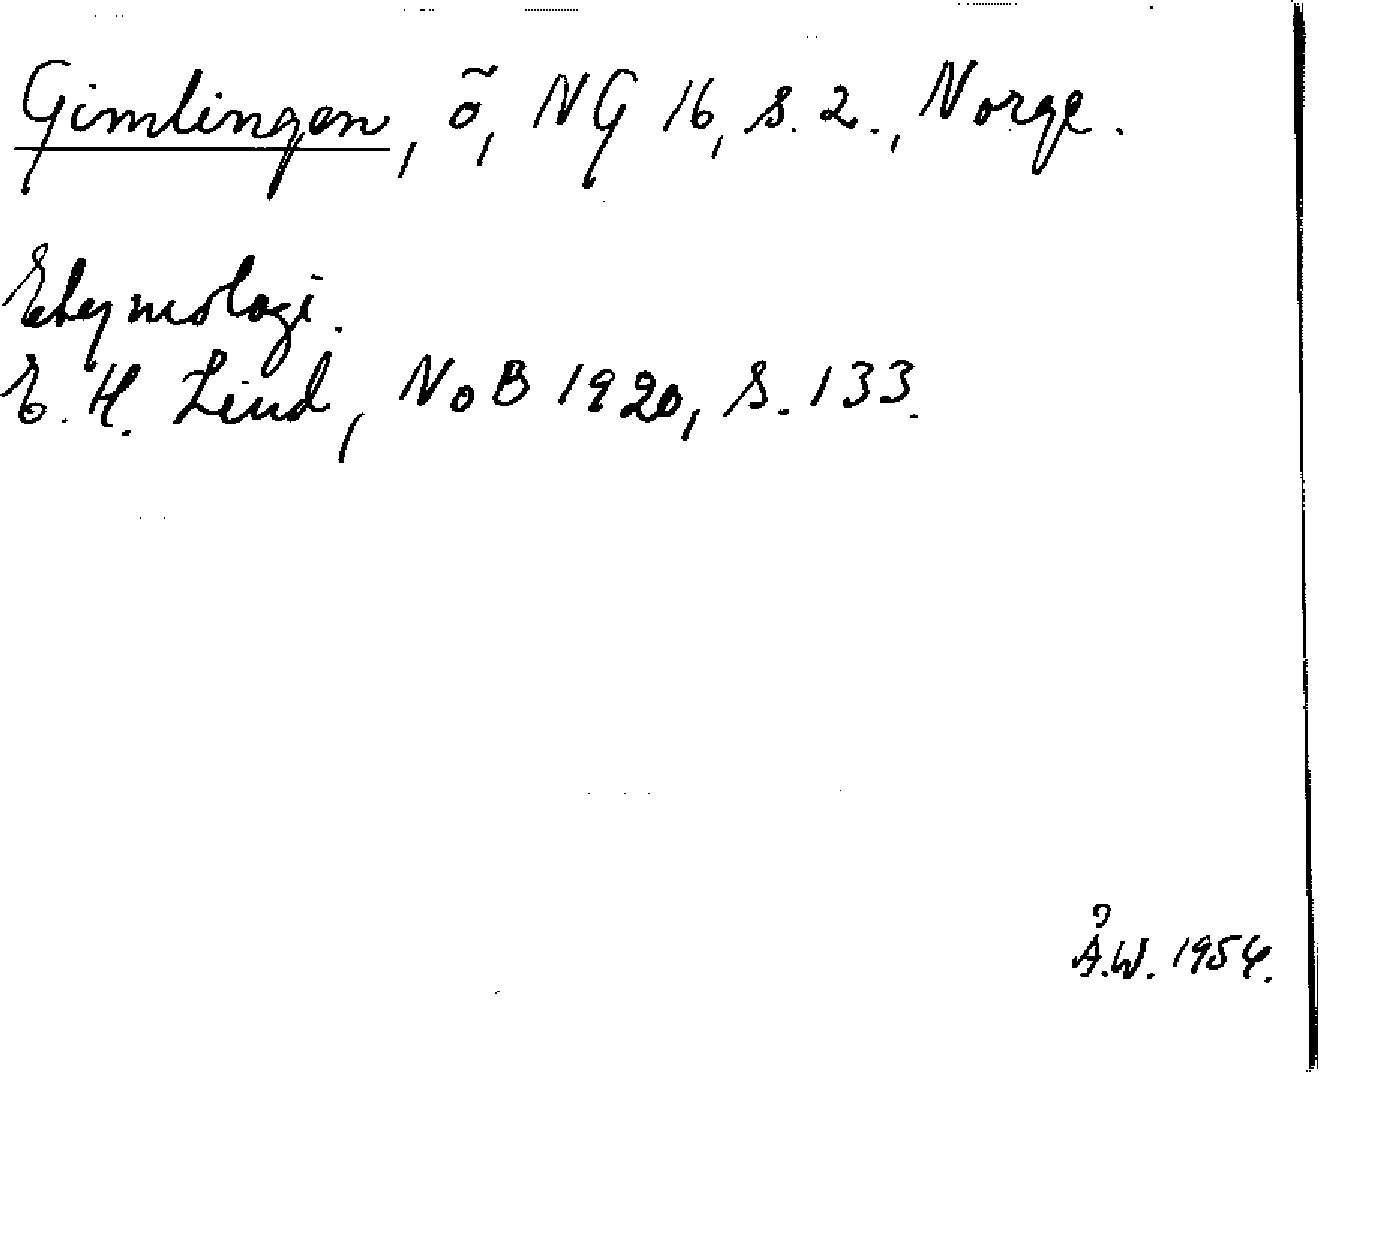 Gimlingen, ö, NG 16, s. 2., Norge.
Etymologi.
E. H. Lind, NoB 1920, S. 133.
Å.W. 1954.